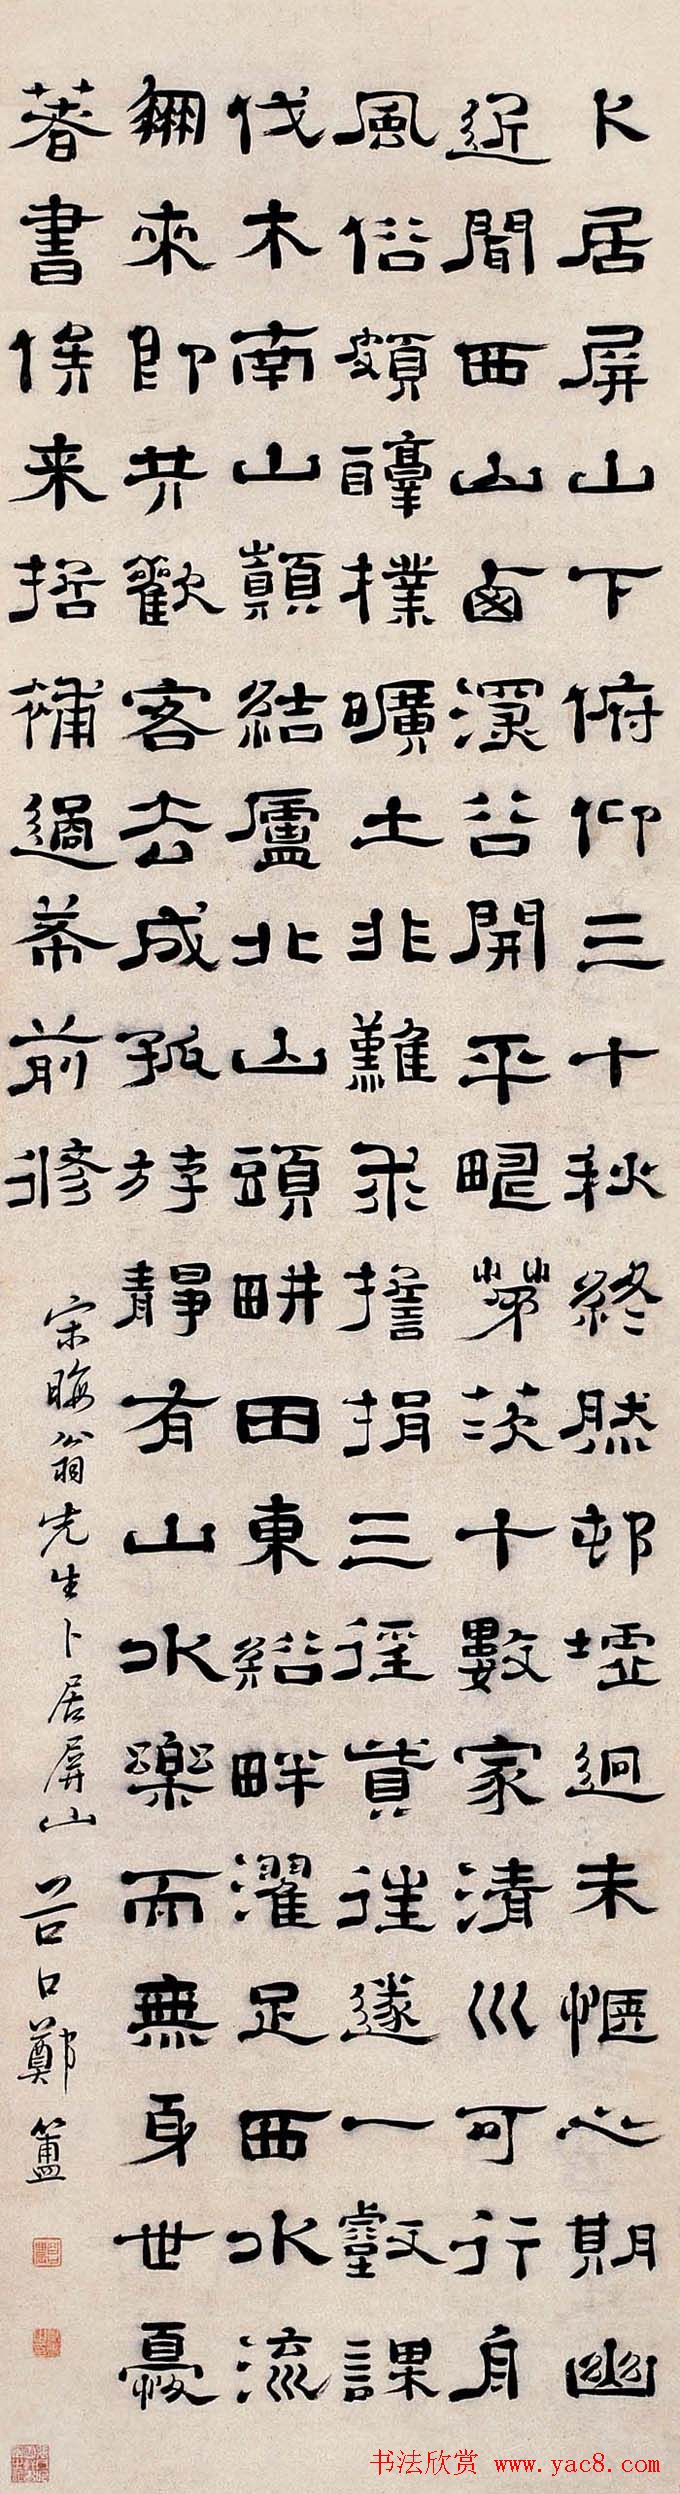 卜居屏山下俯仰三十秋終然邨墟迥未愜心期幽
近聞西山鹵深谷開平疇茅茨十數家清川可行舟
風俗頗樸曠土非難求擔捐三徑貲往遂一壑課
伐木南山巔結廬北山頭畊田東谿畔濯足西水流
來即共歡客去成孤游靜有山水樂而無身世憂
著書俟来哲補過希前修
宋晦翁先生卜居屏山 谷口鄭簠
书法欣赏 www.yac8.com